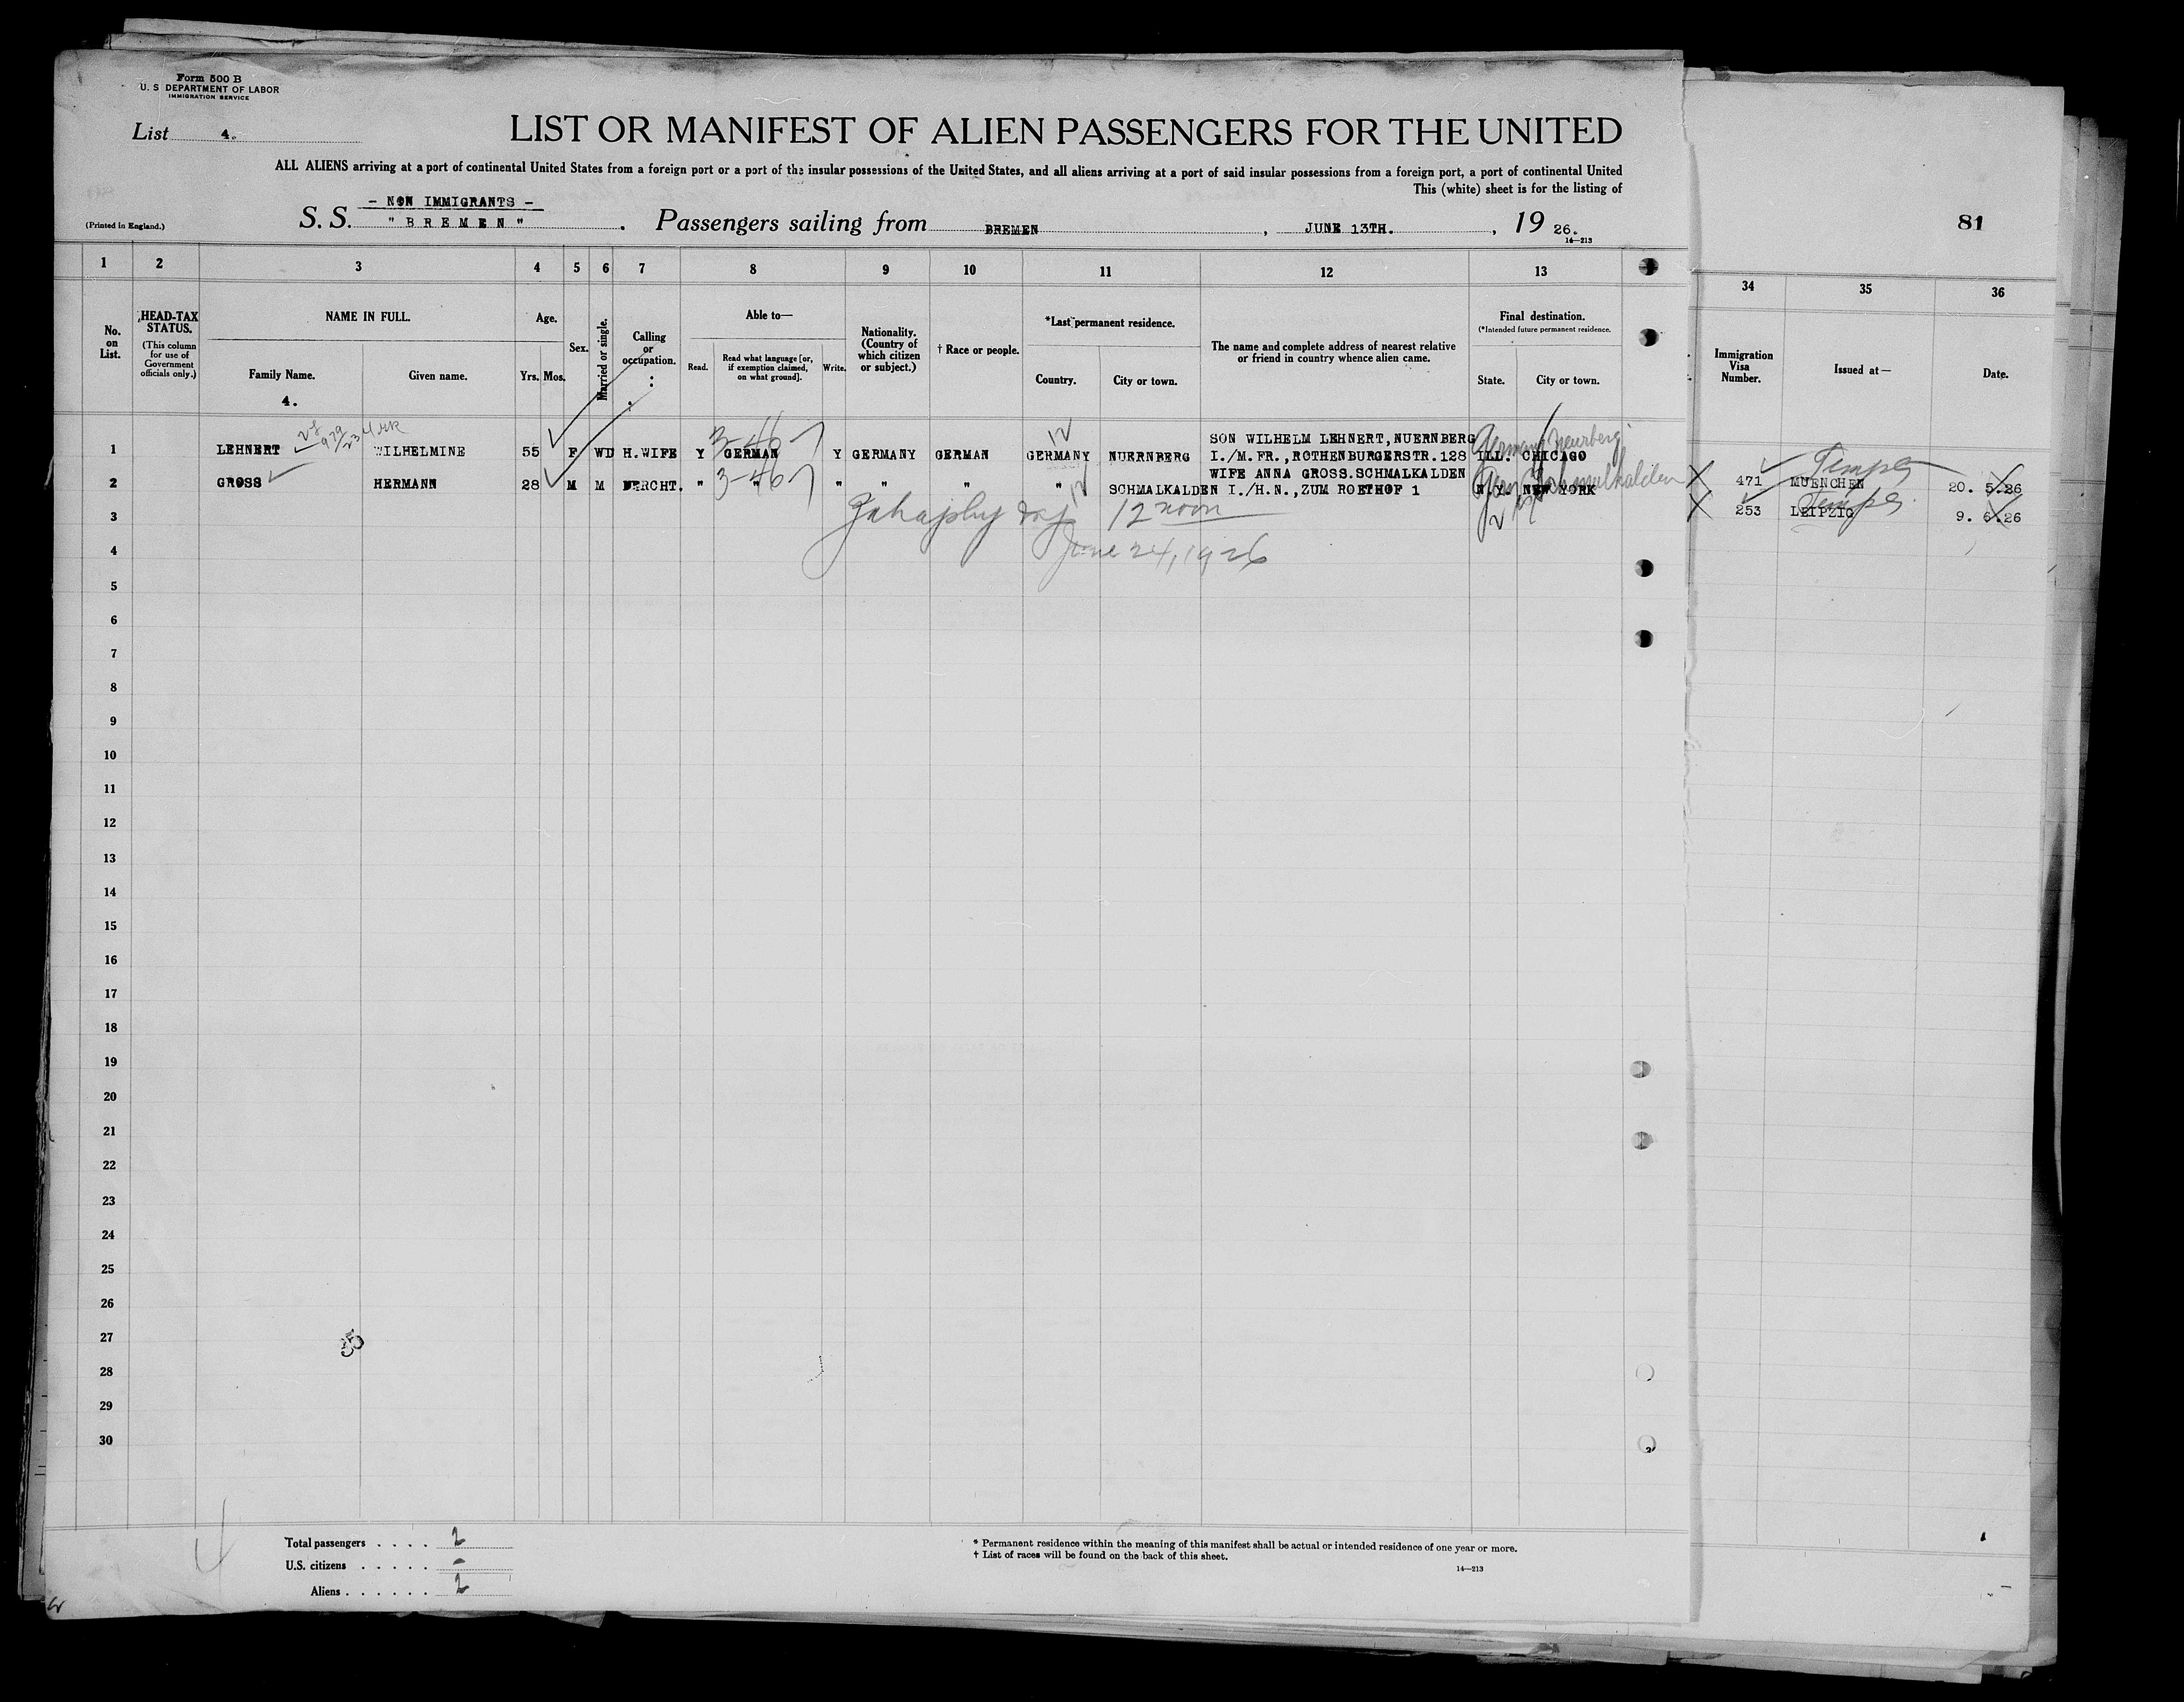 Form 500 B
U. S DEPARTMENT OF LABOR
IMMIGRATION SERVICE
List 4.
LIST OR MANIFEST OF ALIEN PASSENGERS FOR THE UNITED
ALL ALIENS arriving at a port of continental United States from a foreign port or a port of the insular possessions of the United States, and all aliens arriving at a port of said insular possessions from a foreign port, a port of continental United
This (white) sheet is for the listing of
- NON IMMIGRANTS -
(Printed in England.)
S. S. " B R E M E N " . Passengers sailing from BREMEN , JUNE 13TH. , 19 26.
14—213
81
1 2 3 4 5 6 7 8 9 10 11 12 13 34 35 36
No. on List.
HEAD-TAX STATUS.
(This column for use of Government officials only.)
NAME IN FULL.
Family Name.
Given name.
4.
Age.
Yrs. Mos.
Sex.
Married or single.
Calling or occupation.
Able to—
Read.
Read what language [or, if exemption claimed, on what ground].
Write.
Nationality. (Country of which citizen or subject.)
† Race or people.
*Last permanent residence.
Country.
City or town.
The name and complete address of nearest relative or friend in country whence alien came.
Final destination.
(*Intended future permanent residence.
State.
City or town.
Immigration Visa Number.
Issued at—
Date.
SON WILHELM LEHNERT, NUERNBERG
1 LEHNERT WILHELMINE 55 F WD H.WIFE Y GERMAN Y GERMANY GERMAN GERMANY NUERNBERG I./M.FR.,ROTHENBURGERSTR.128 ILL. CHICAGO
WIFE ANNA GROSS.SCHMALKALDEN
2 GROSS HERMANN 28 M M MERCHT. " " " " " " SCHMALKALDEN I./H.N.,ZUM ROETHOF 1 N.Y. NEW YORK
471 MUENCHEN 20. 5.26
253 LEIPZIG 9. 6.26
3-46
3-46
12 noon
June 24, 1926
3
4
5
6
7
8
9
10
11
12
13
14
15
16
17
18
19
20
21
22
23
24
25
26
27
28
29
30
Total passengers . . . . 2
U.S. citizens . . . . . -
Aliens . . . . . . 2
* Permanent residence within the meaning of this manifest shall be actual or intended residence of one year or more.
† List of races will be found on the back of this sheet.
14—213